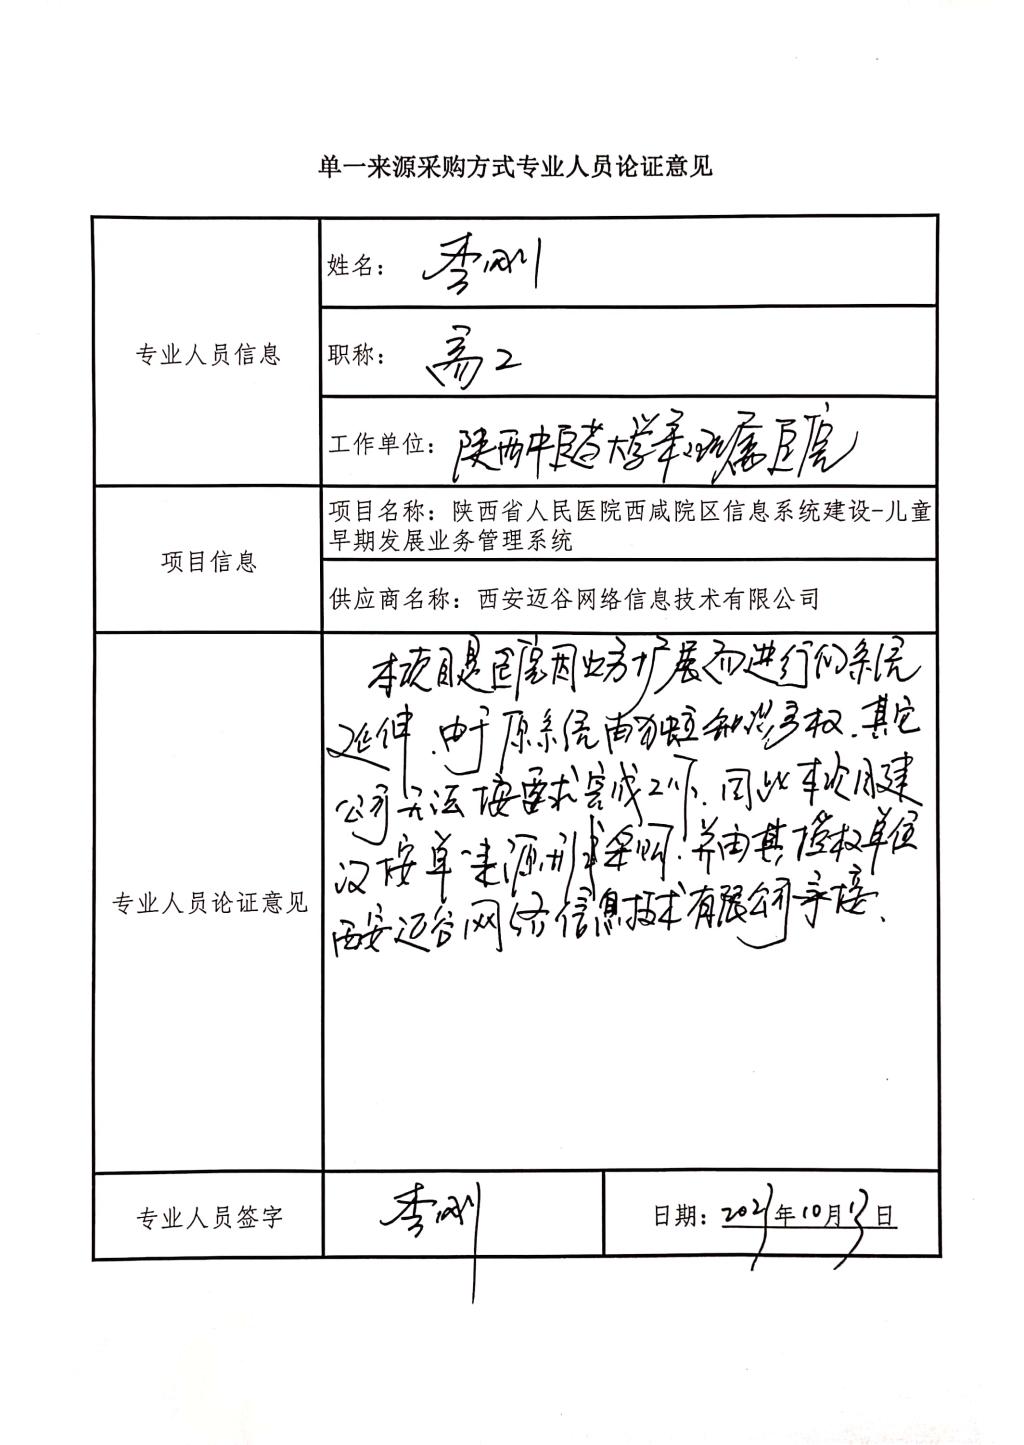 单一来源采购方式专业人员论证意见
专业人员信息
姓名： 李刚
职称： 高工
工作单位： 陕西中医药大学第二附属医院
项目信息
项目名称：陕西省人民医院西咸院区信息系统建设-儿童
早期发展业务管理系统
供应商名称：西安迈谷网络信息技术有限公司
专业人员论证意见
本项目是医院因业务扩展而进行的系统
延伸，由于原系统有独立知识产权，其它
公司无法按要求完成工作，因此本次
按单一来源形式采购，并由其授权单位
西安迈谷网络信息技术有限公司承接。
专业人员签字
李刚
日期： 年10月13日